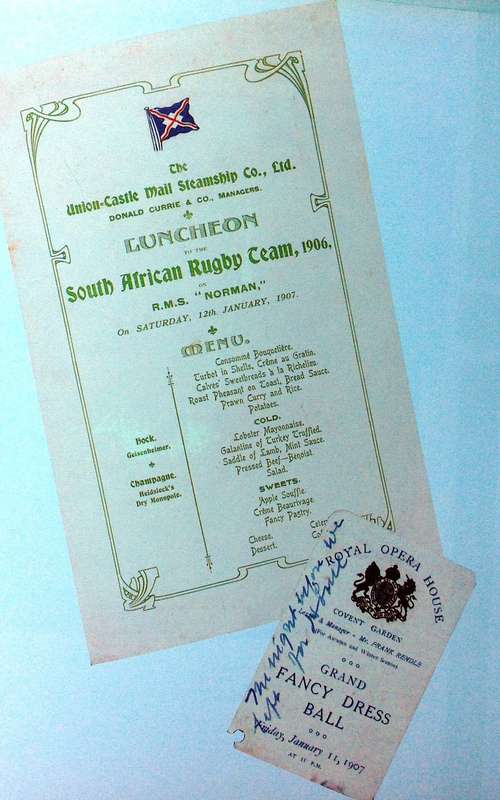 The
Union-Castle Mail Steamship Co., Ltd.
DONALD CURRIE & CO., MANAGERS.
LUNCHEON
TO THE
South African Rugby Team, 1906,
ON
R.M.S. "NORMAN,"
On SATURDAY, 12th JANUARY, 1907.
MENU.
Consommé Bouquetière.
Turbot in Shells, Crême au Gratin.
Calves' Sweetbreads à la Richelieu.
Roast Pheasant on Toast, Bread Sauce.
Prawn Curry and Rice.
Potatoes.
COLD.
Lobster Mayonnaise.
Galantine of Turkey Truffled.
Saddle of Lamb, Mint Sauce.
Pressed Beef—Benoist
Salad.
SWEETS.
Apple Souffle.
Crême Beaurivage.
Fancy Pastry.
Cheese.
Dessert.
Hock.
Geisenheimer.
Champagne.
Heidsieck's
Dry Monopole.
ROYAL OPERA HOUSE
COVENT GARDEN
& Manager - Mr. FRANK RENDLE
(For Autumn and Winter Season)
GRAND
FANCY DRESS
BALL
Friday, January 11, 1907
AT 11 P.M.
The night before we
left for home